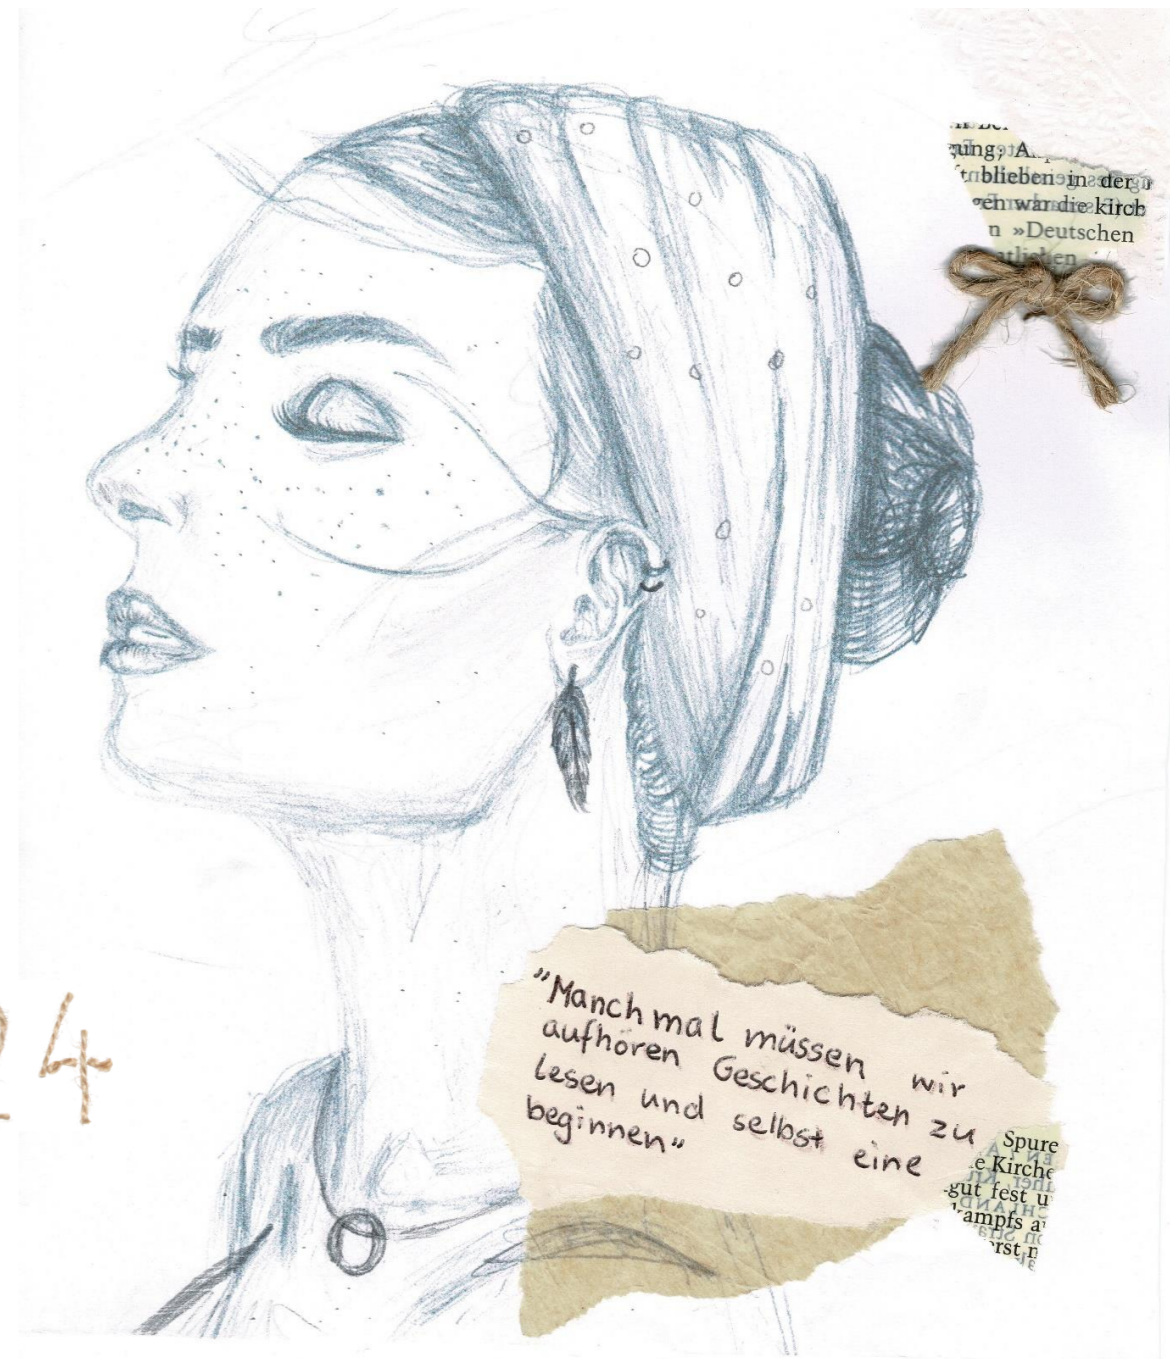 gung,
blieben in der
gen war die kirch
»Deutschen
24
"Manchmal müssen wir
aufhören Geschichten zu
lesen und selbst eine
beginnen"
Spure
e Kirche
gut fest u
kampfs a
erst n